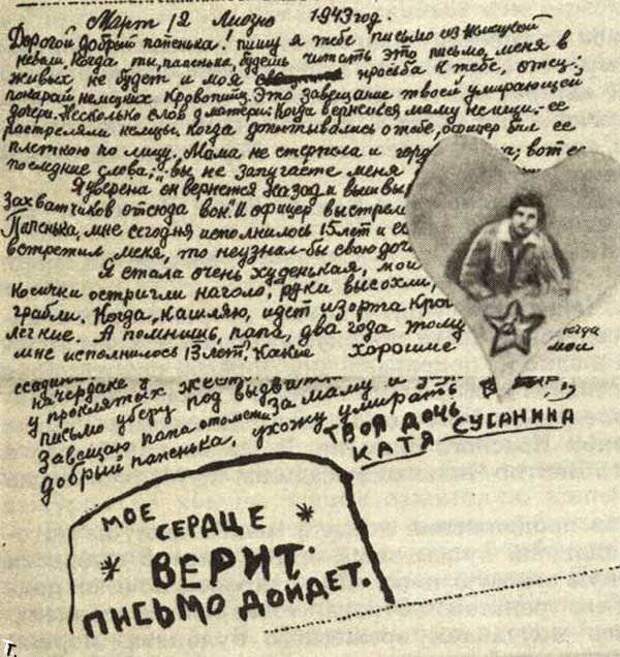 Март, 12 Лиозно 1943 год.
Дорогой добрый папенька! пишу я тебе письмо из немецкой
неволи. Когда ты, папенька, будешь читать это письмо, меня в
живых не будет и моя просьба к тебе, отец:
покарай немецких кровопийц. Это завещание твоей умирающей
дочери. Несколько слов о матери. Когда вернешься маму не ищи. ее
расстреляли немцы. Когда допытывались о тебе, офицер бил ее
плеткою по лицу. Мама не стерпела и гордо вот ее
последние слова; "вы не запугаете меня
Я уверена он вернется назад и вышвы
захватчиков отсюда вон". И офицер выстрел
Папенька, мне сегодня исполнилось 15 лет и ес
встретил меня, то неузнал-бы свою доч
Я стала очень худенькая, мои
косички остригли наголо, руки высохли,
грабли. Когда, кашляю, идет из орта кро
легкие. А помнишь, папа, два года тому когда
мне исполнилось 13 лет, Какие хорошие мои
на чердаке у
у проклятых жест
письмо уберу под
Завещаю папа отомсти за маму и
добрый папенька, ухожу умирать
ТВОЯ ДОЧЬ
КАТЯ СУСАНИНА
МОЕ
СЕРДЦЕ
ВЕРИТ.
ПИСЬМО ДОЙДЕТ.
г.